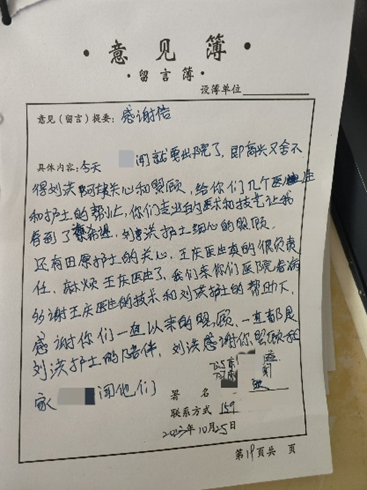 意见簿
·留言簿·
设簿单位
意见（留言）提要：感谢信
具体内容：今天 闺就要出院了，即高兴又舍不
得刘洪阿姨关心和照顾，给你们几个医生
和护士的帮忙，你们专业的医术和技艺让我
看到了希望，刘洪护士细心的照顾
还有田原护士的关心，王庆医生真的很负责
任，麻烦王庆医生了，我们来你们医院看病
感谢王庆医生的技术和刘洪护士的帮助下，
感谢你们一直以来的照顾，一直都是
刘洪护士的陪伴，刘洪感谢你照顾
家 闺他们
署名
联系方式 159
2023年10月25日
第19页共 页